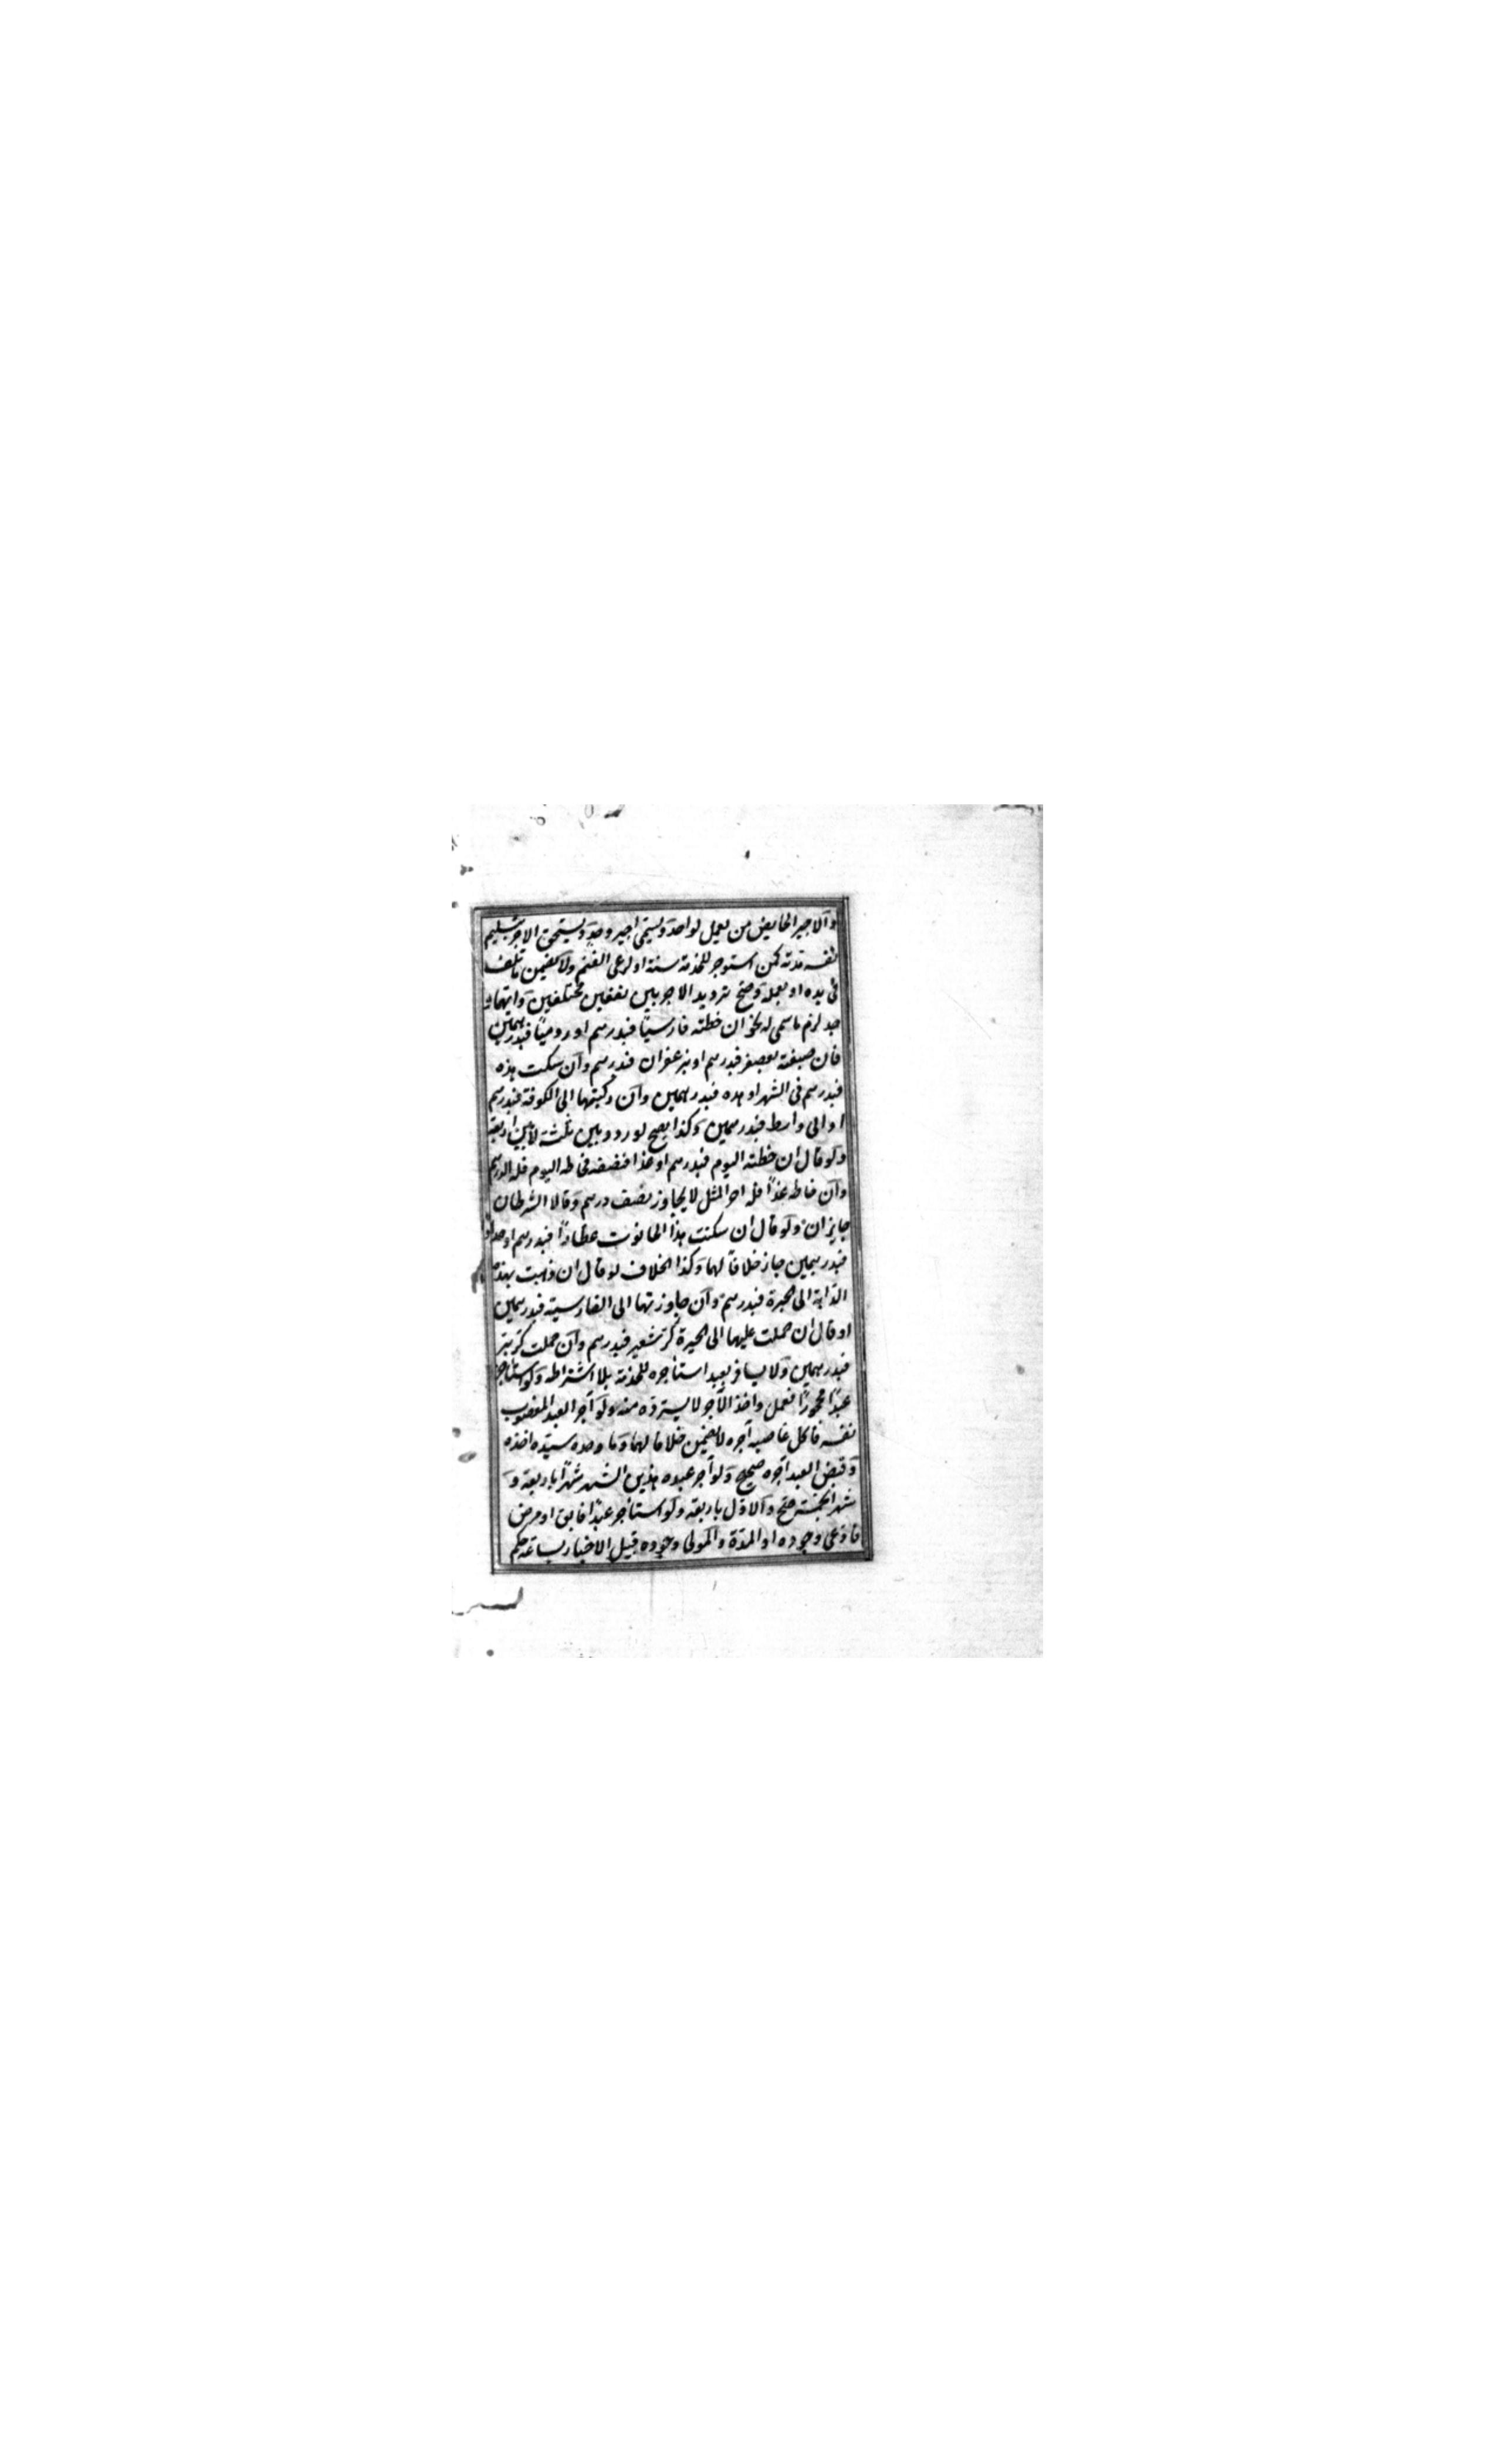 والاجير الخاص من يعمل لواحد ويسمى اجير وحد ويستحق الاجر بتسليم
نفسه مدته كمن استوجر للخدمة سنة او لرعى الغنم ولا يضمن ما تلف
فى يده او بعمله وصح ترديد الاجر بين نفعين مختلفين وايهما
وجد لزم ما سمى له نحو ان خطته فارسيا فبدرهم او روميا فبدرهمين
فان صبغته بعصفر فبدرهم او بزعفران فبدرهم وان سكنت هذه
فبدرهم فى الشهر او هذه فبدرهمين وان ركبتها الى الكوفة فبدرهم
او الى واسط فبدرهمين وكذا يصح لو ردد بين ثلثة لا بين اربعة
ولو قال ان خطته اليوم فبدرهم او غدا فنصفه فخاطه اليوم فله الدرهم
وان خاطه غدا فله اجر المثل لا يجاوز نصف درهم وقالا الشرطان
جايزان ولو قال ان سكنت هذا الحانوت عطارا فبدرهم او حدادا
فبدرهمين جاز خلافا لهما وكذا الخلاف لو قال ان ذهبت بهذه
الدابة الى الحيرة فبدرهم وان جاوزتها الى القادسية فبدرهمين
او قال ان حملت عليها الى الحيرة كر شعير فبدرهم وان حملت كر بر
فبدرهمين ولا يسافر بعبد استاجره للخدمة بلا اشتراطه ولو استأجر
عبدا محجورا فعمل واخذ الاجر لا يسترده منه ولو آجر العبد المغصوب
نفسه فاكل غاصبه اجره لا يضمن خلافا لهما وما وجده سيده اخذه
وقبض العبد اجره صحيح ولو آجر عبده هذين الشهرين شهرا باربعة و
شهرا بخمسة صح والاول باربعة ولو استأجر عبدا فابق او مرض
فادعى وجوده اول المدة والمولى وجوده قبيل الاخبار بساعة حكم